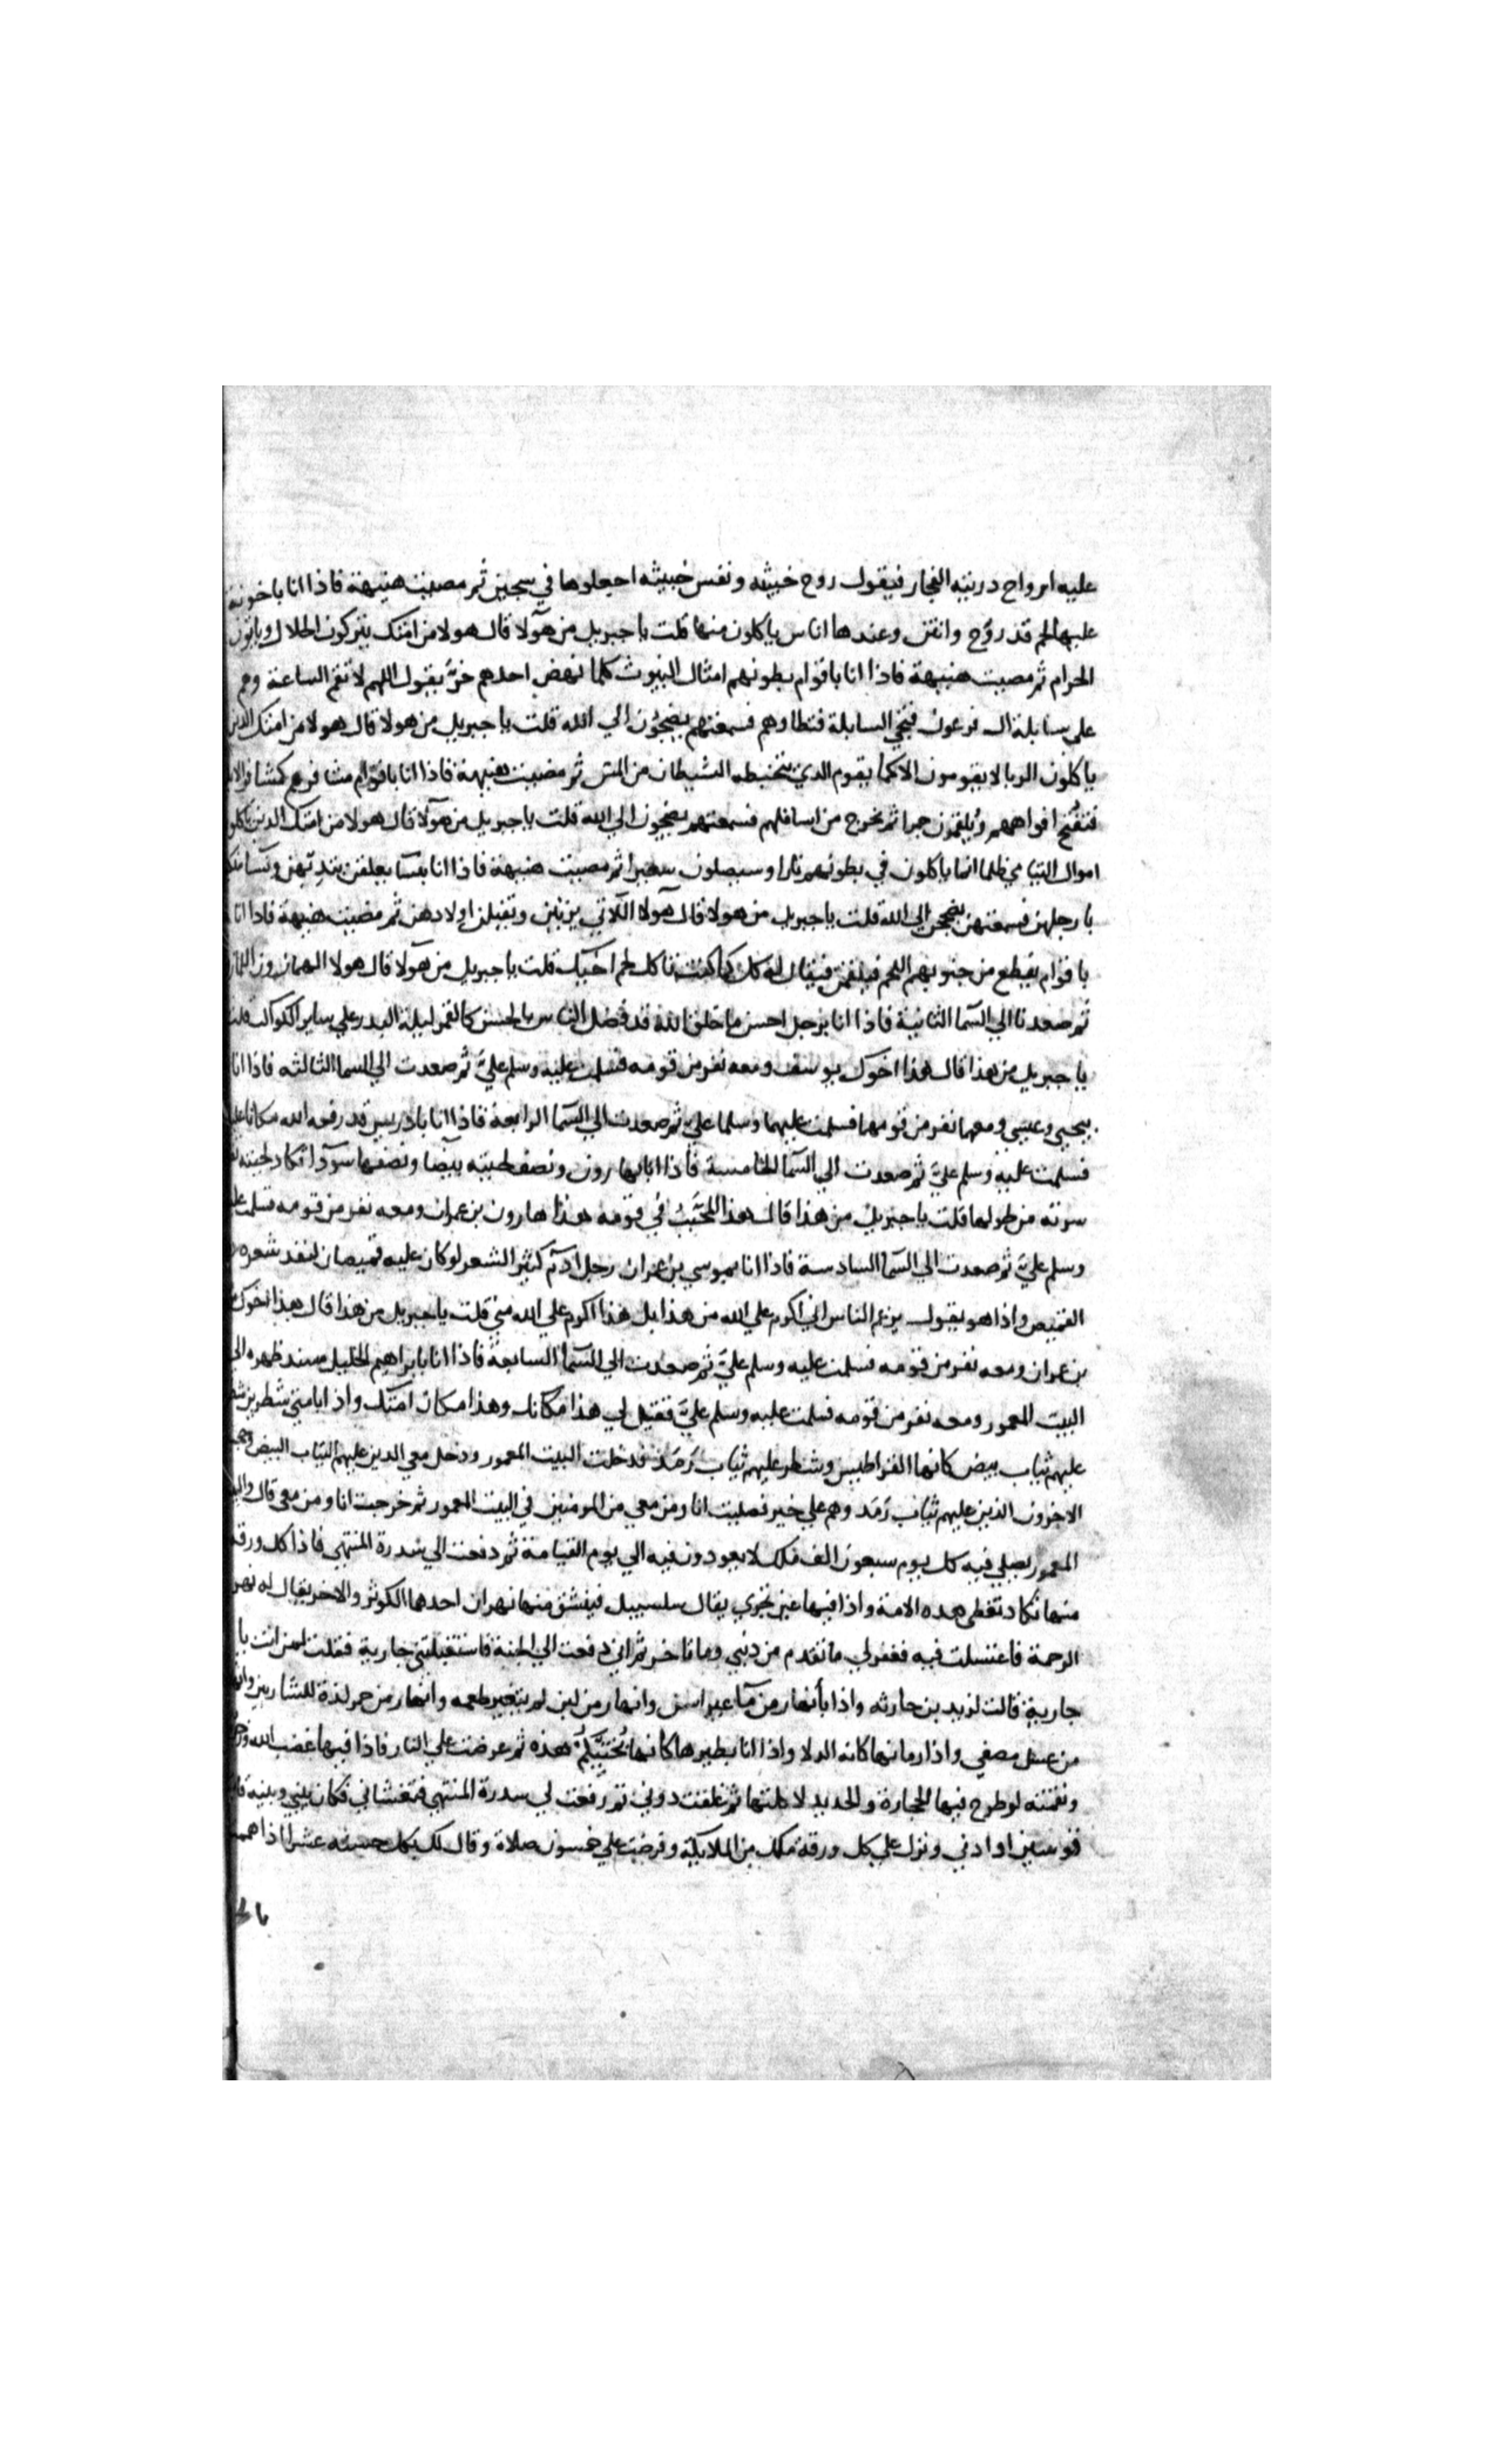 عليه ارواح دريته الفجار فيقول روح خبيثه ونفس خبيثه اجعلوها في سجين ثم مضيت هنيهة فاذا انا باخونة
عليها لحم قد روّح وانتن وعندها اناس ياكلون منها قلت يا جبريل من هولا قال هولا من امتك يتركون الحلال وياتون
الحرام ثم مضيت هنيهة فاذا انا باقوام بطونهم امثال البيوت كلما نهض احدهم خرّ يقول اللهم لا تقم الساعة وهم
علي سابلة ال فرعون فتجي السابلة فتطاوهم فسمعتهم يضجون الي الله قلت يا جبريل من هولا قال هولا من امتك الدين
ياكلون الربا لا يقومون الا كما يقوم الدي يتخبطه الشيطان من المس ثم مضيت هنيهة فاذا انا باقوام مشافرهم كمشافر الابل
فتفتح افواههم ويلقمون جمرا ثم يخرج من اسافلهم فسمعتهم يضجون الي الله قلت يا جبريل من هولا قال هولا من امتك الدين ياكلون
اموال اليتامي ظلما انما ياكلون في بطونهم نارا وسيصلون سعيرا ثم مضيت هنيهة فاذا انا بنسا يعلقن بثديهن ونسا
بارجلهن فسمعتهن يضججن الي الله قلت يا جبريل من هولا قال هولا اللاتي يزنين ويقتلن اولادهن ثم مضيت هنيهة فاذا انا
باقوام يقطع من جنوبهم اللحم فيلقمن فيقال له كل كما كنت تاكل لحم اخيك قلت يا جبريل من هولا قال هولا الهمازون اللمازون
ثم صعدنا الي السما الثانية فاذا انا برجل احسن ما خلق الله قد فضل الناس بالحسن كالقمر ليلة البدر علي ساير الكواكب قلت
يا جبريل من هذا قال هذا اخوك يوسف ومعه نفر من قومه فسلمت عليه وسلم عليّ ثم صعدت الي السما الثالثه فاذا انا
بيحيي وعيسي ومعهما نفر من قومهما فسلمت عليهما وسلما علي ثم صعدت الي السما الرابعة فاذا انا بادريس قد رفعه الله مكانا عليا
فسلمت عليه وسلم عليّ ثم صعدت الي السما الخامسة فاذا انا بهارون ونصف لحيته بيضا ونصفها سودا تكاد لحيته
سرته من طولها قلت يا جبريل من هذا قال هذا المحبب في قومه هذا هارون بن عمران ومعه نفر من قومه فسلمت عليه
وسلم عليّ ثم صعدت الي السما السادسة فاذا انا بموسي بن عمران رجل ادم كثير الشعر لو كان عليه قميصان لنفد شعره
القميص واذا هو يقول يزعم الناس اني اكرم علي الله من هذا بل هذا اكرم علي الله مني قلت يا جبريل من هذا قال هذا اخوك
بن عمران ومعه نفر من قومه فسلمت عليه وسلم عليّ ثم صعدت الي السما السابعة فاذا انا بابراهيم الخليل مسند ظهره الي
البيت المعمور ومعه نفر من قومه فسلمت عليه وسلم عليّ فقيل لي هذا مكانك وهذا مكان امتك واذا بامتي شطرين شطر
عليهم ثياب بيض كانها القراطيس وشطر عليهم ثياب رمد فدخلت البيت المعمور ودخل معي الدين عليهم الثياب البيض وحجب
الاخرون الذين عليهم ثياب رمد وهم علي خير فصليت انا ومن معي من المومنين في البيت المعمور ثم خرجت انا ومن معي قال والبيت
المعمور يصلي فيه كل يوم سبعون الف ملك لا يعودون فيه الي يوم القيامة ثم دفعت الي سدرة المنتهي فاذا كل ورقة
منها تكاد تغطي هده الامة واذا فيها عين تجري يقال سلسبيل فينشق منها نهران احدهما الكوثر والاخر يقال له نهر
الرحمة فاغتسلت فيه فغفر لي ما تقدم من دنبي وما تاخر ثم اني دفعت الي الجنة فاستقبلتني جارية فقلت لمن انت يا
جارية قالت لزيد بن حارثه واذا بأنهار من مآ غير اسن وانهار من لبن لم يتغير طعمه وانهار من خمر لذة للشاربين وانهار
من عسل مصفي واذا رمانها كانه الدلا واذا انا بطيرها كانها بختيكم هذه ثم عرضت علي النار فاذا فيها غضب الله
ونقمته لو طرح فيها الحجارة والحديد لاكلتها ثم غلقت دوني ثم رفعت لي سدرة المنتهي فتغشاني فكان بيني وبينه قاب
قوسين او ادني ونزل علي كل ورقة ملك من الملايكة وفرضت علي خمسون صلاة وقال لك بكل حسنه عشر اذا هممت